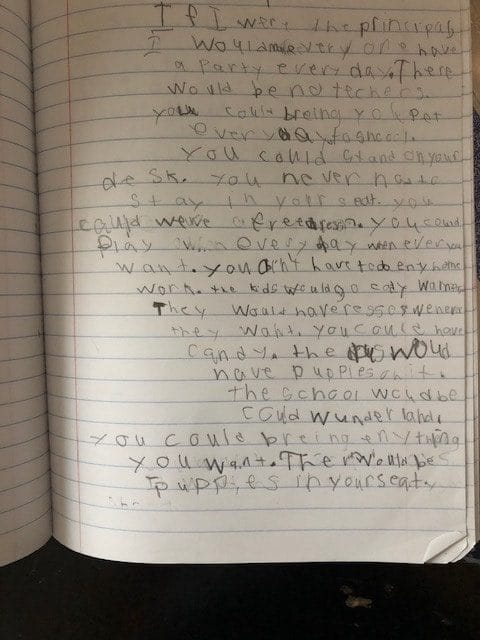 If I were the principal
I would make every one have
a party every day. There
would be no techers.
you could breing you pet
every day to shcool.
you could stand on your
desk. you never have to
stay in your seat. you
could weare a free dress. you could
Play every day when ever you
want. you don't have to do eny home
work. the kids would go cody
They would have resses wenever
they want. you could have
candy. the would
have puppies on it.
the school woud be
coud wunder land.
you could breing enything
you want. Ther would be
puppies in your seat.